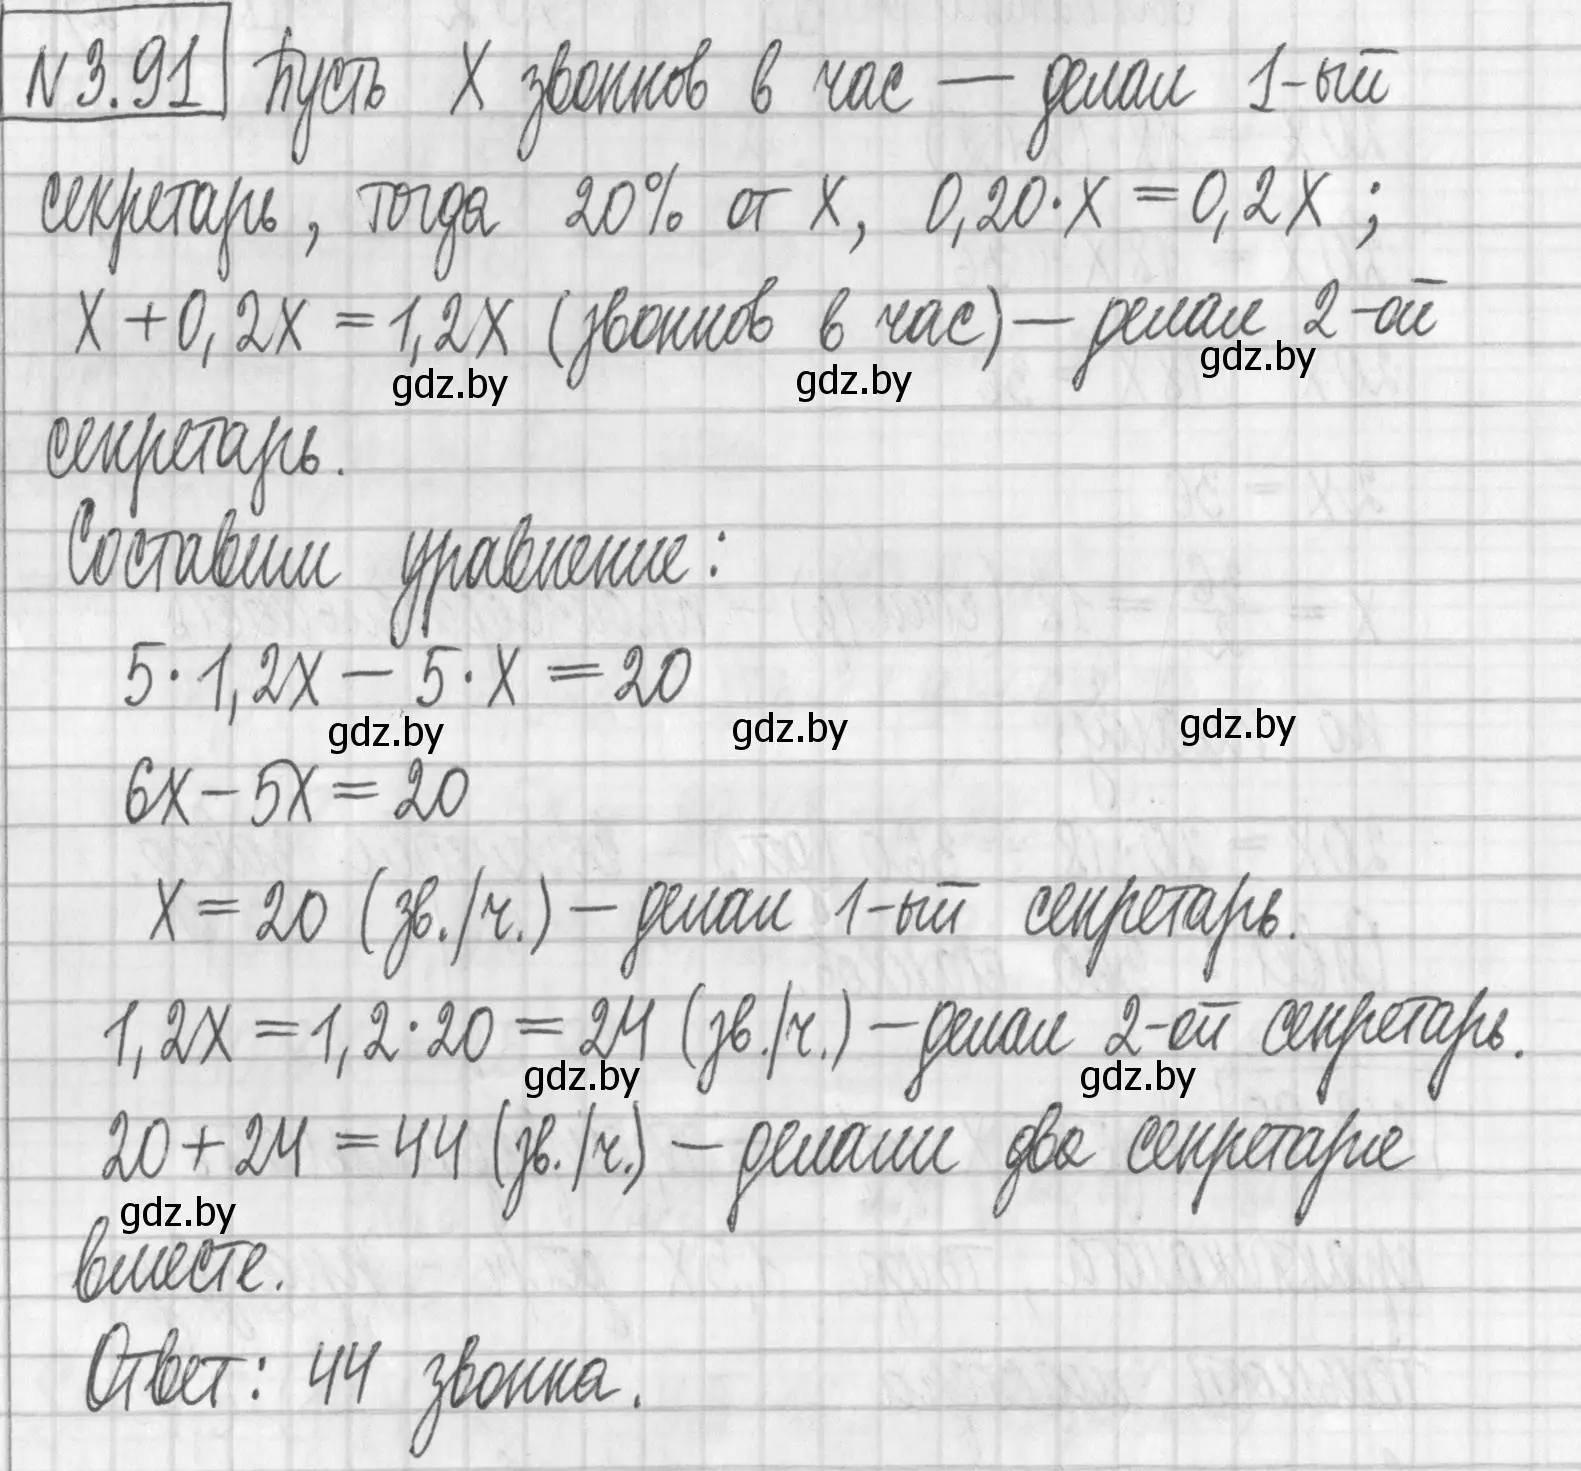 N 3.91 Пусть X звонков в час — делал 1-ый
секретарь, тогда 20% от X, 0,20·X = 0,2X ;
X + 0,2X = 1,2X (звонков в час) — делал 2-ой
gdz.by gdz.by gdz.by
секретарь.
Составим уравнение:
5·1,2X — 5·X = 20
gdz.by gdz.by gdz.by
6X — 5X = 20
X = 20 (зв./ч.) — делал 1-ый секретарь.
1,2X = 1,2·20 = 24 (зв./ч.) — делал 2-ой секретарь.
gdz.by gdz.by
20 + 24 = 44 (зв./ч.) — делали два секретаря
gdz.by
вместе.
Ответ: 44 звонка.